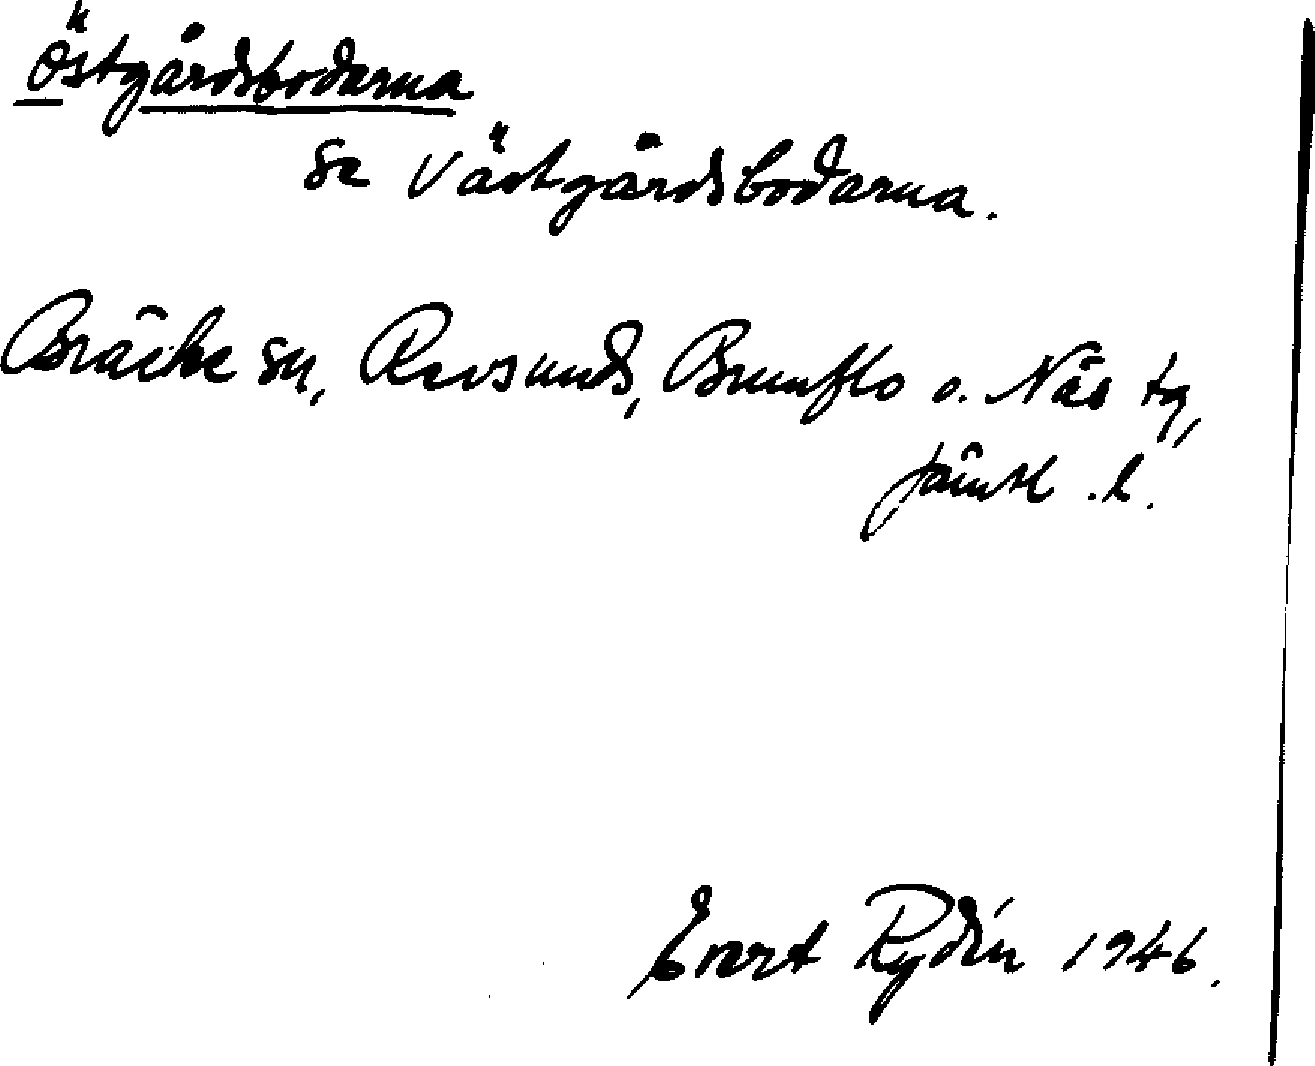 Östgårdsbodarna
se Västgårdsbodarna.
Bräcke sn, Revsunds, Brunflo o. Näs tg,
Jämtl .l.
Evert Rydin 1946.